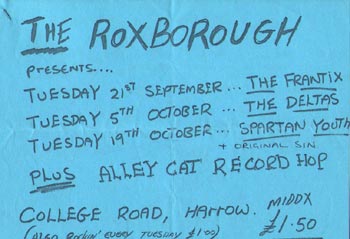 THE ROXBOROUGH
PRESENTS....
TUESDAY 21ST SEPTEMBER... THE FRANTIX
TUESDAY 5TH OCTOBER... THE DELTAS
TUESDAY 19TH OCTOBER... SPARTAN YOUTH
+ ORIGINAL SIN
PLUS ALLEY CAT RECORD HOP
COLLEGE ROAD, HARROW. MIDDX
(ALSO ROCKIN' EVERY TUESDAY £1.00) £1.50